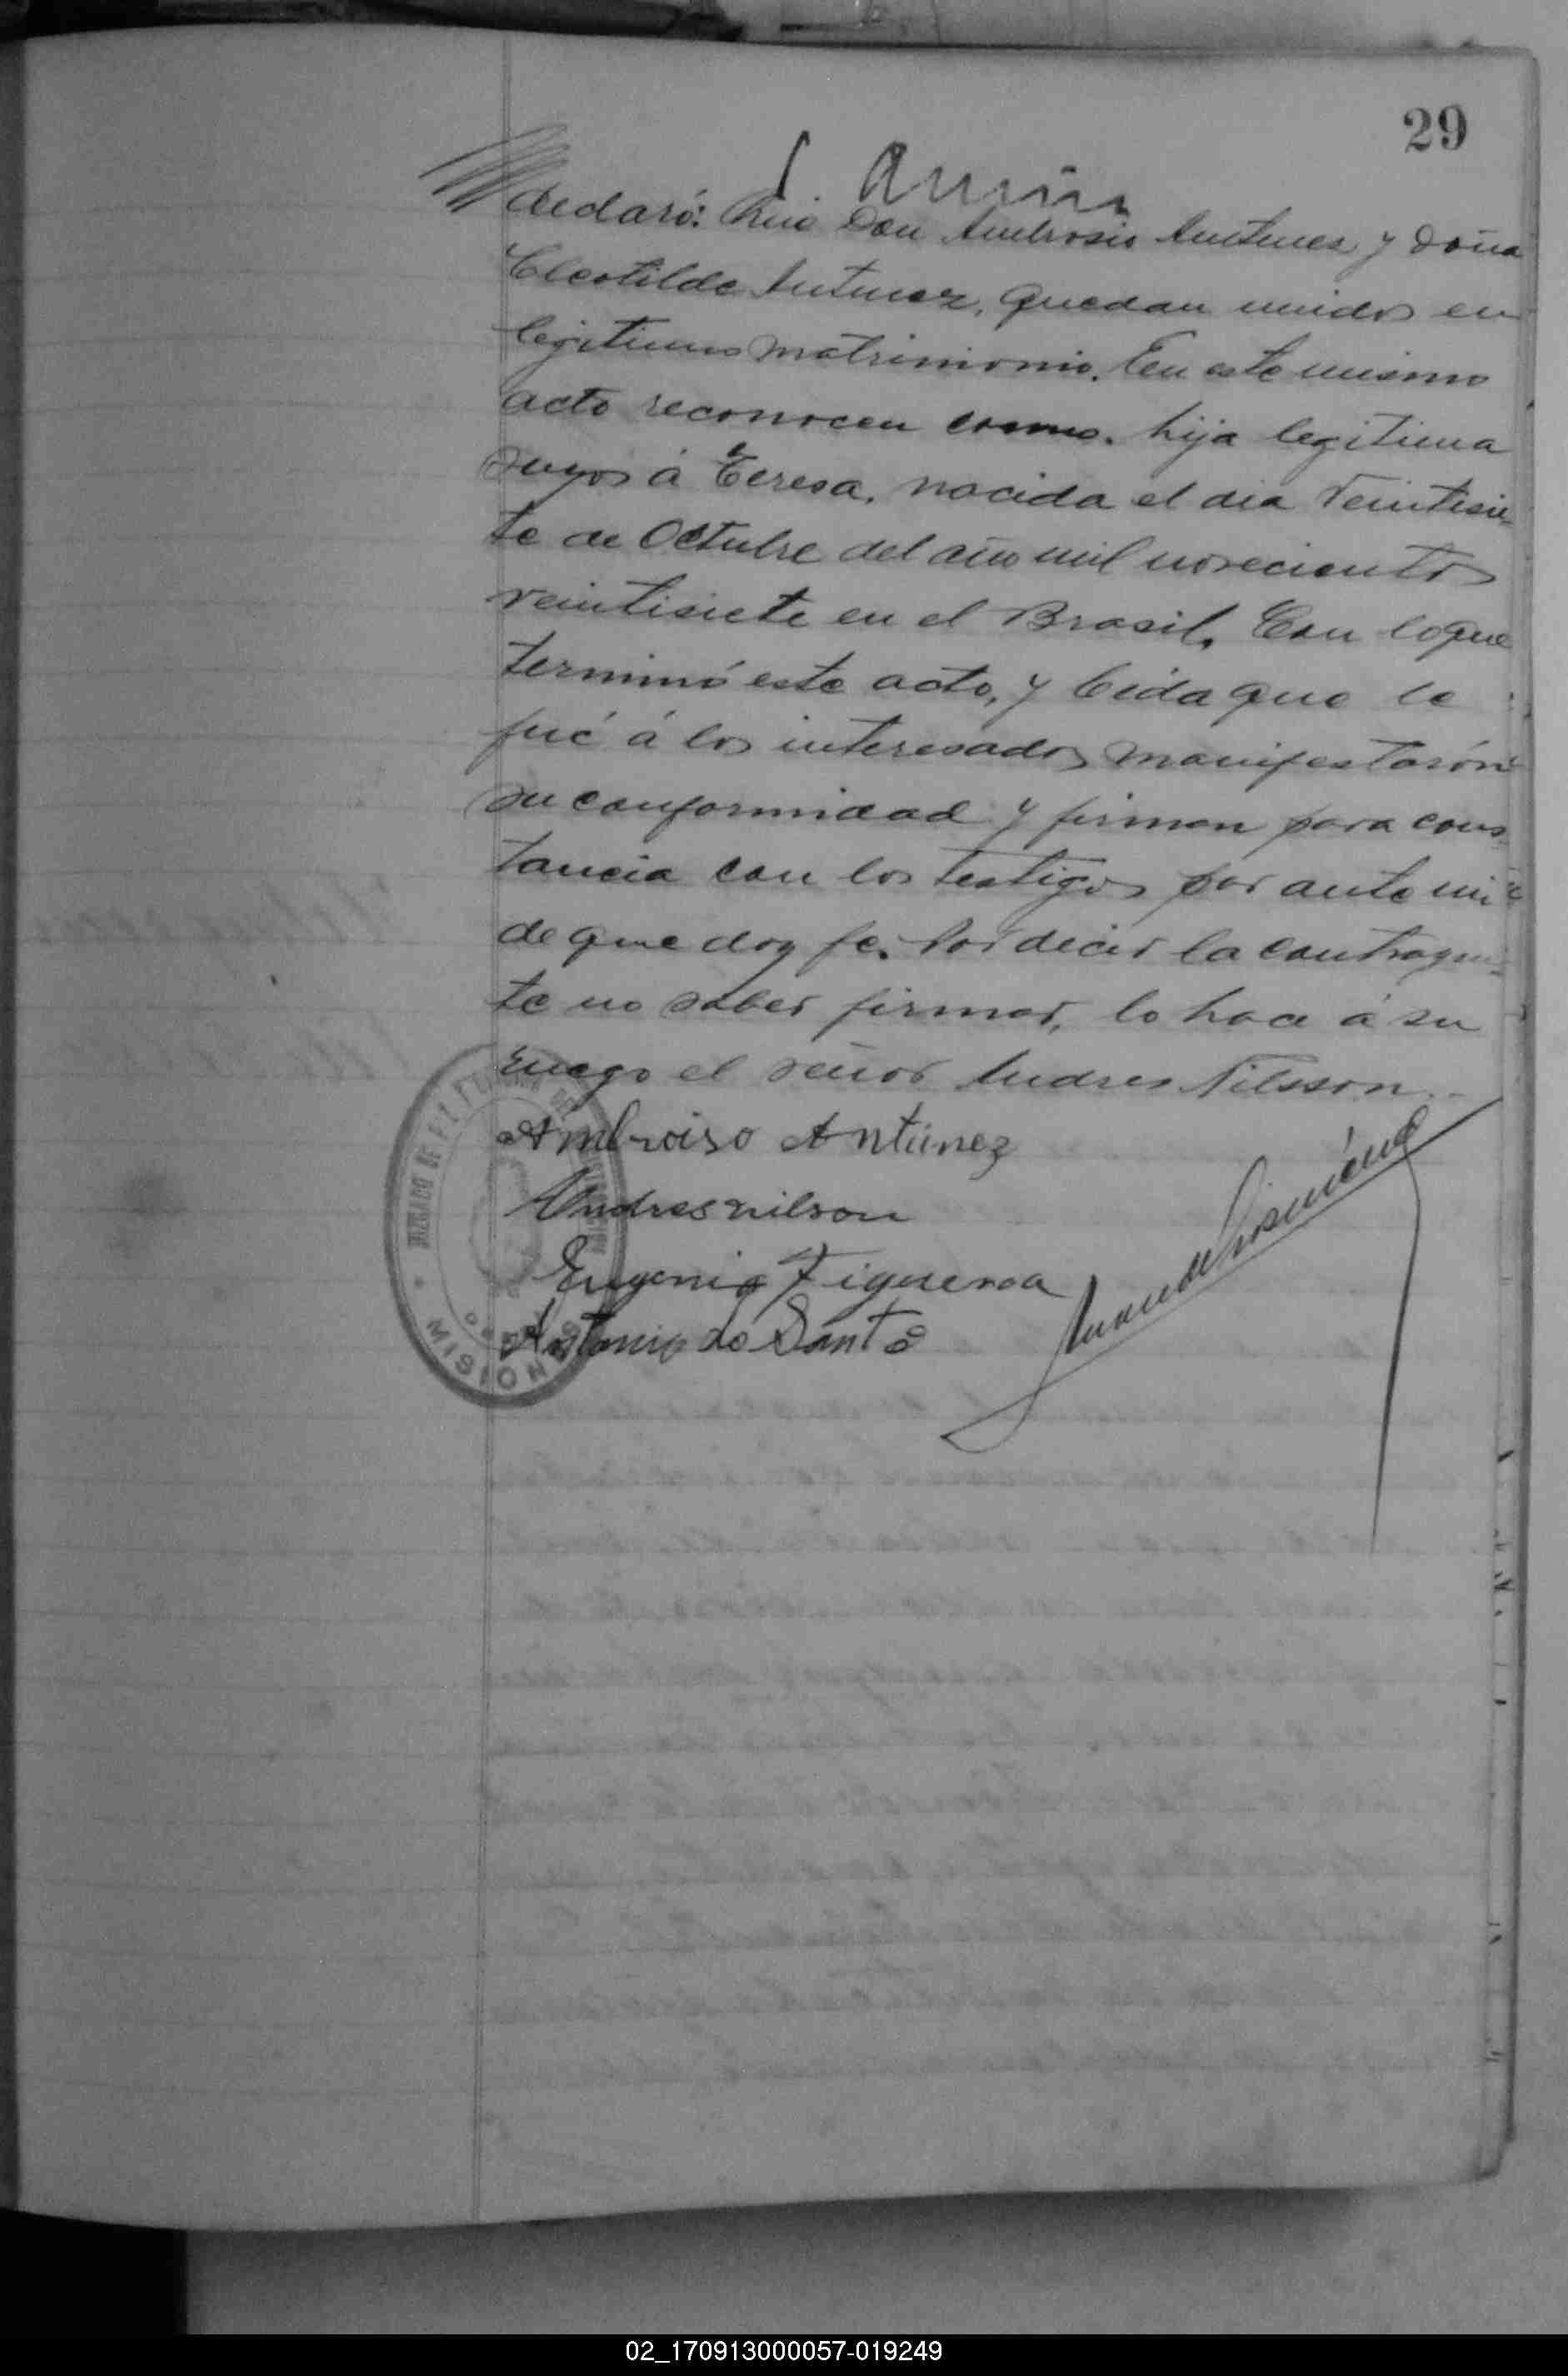 29
declaró: Que Don Ambrosio Antunez y Doña
Cleotilde Antunez, quedan unidos en
legitimo matrimonio. En este mismo
acto reconocen como hija legitima
suyos á Teresa, nacida el dia veintisie-
te de Octubre del año mil novecientos
veintisiete en el Brasil. Con lo que
terminó este acto, y leida que le
fué á los interesados manifestarón
su conformidad y firman para cons-
tancia con los testigos por ante mi
de que doy fe. Por decir la contrayen-
te no saber firmar, lo hace á su
ruego el señor Andres Nilsson
Ambroiso Antúnez
Andres nilson
Eugenio Figueroa
Antonio do Santo
MISIONES
02_170913000057-019249